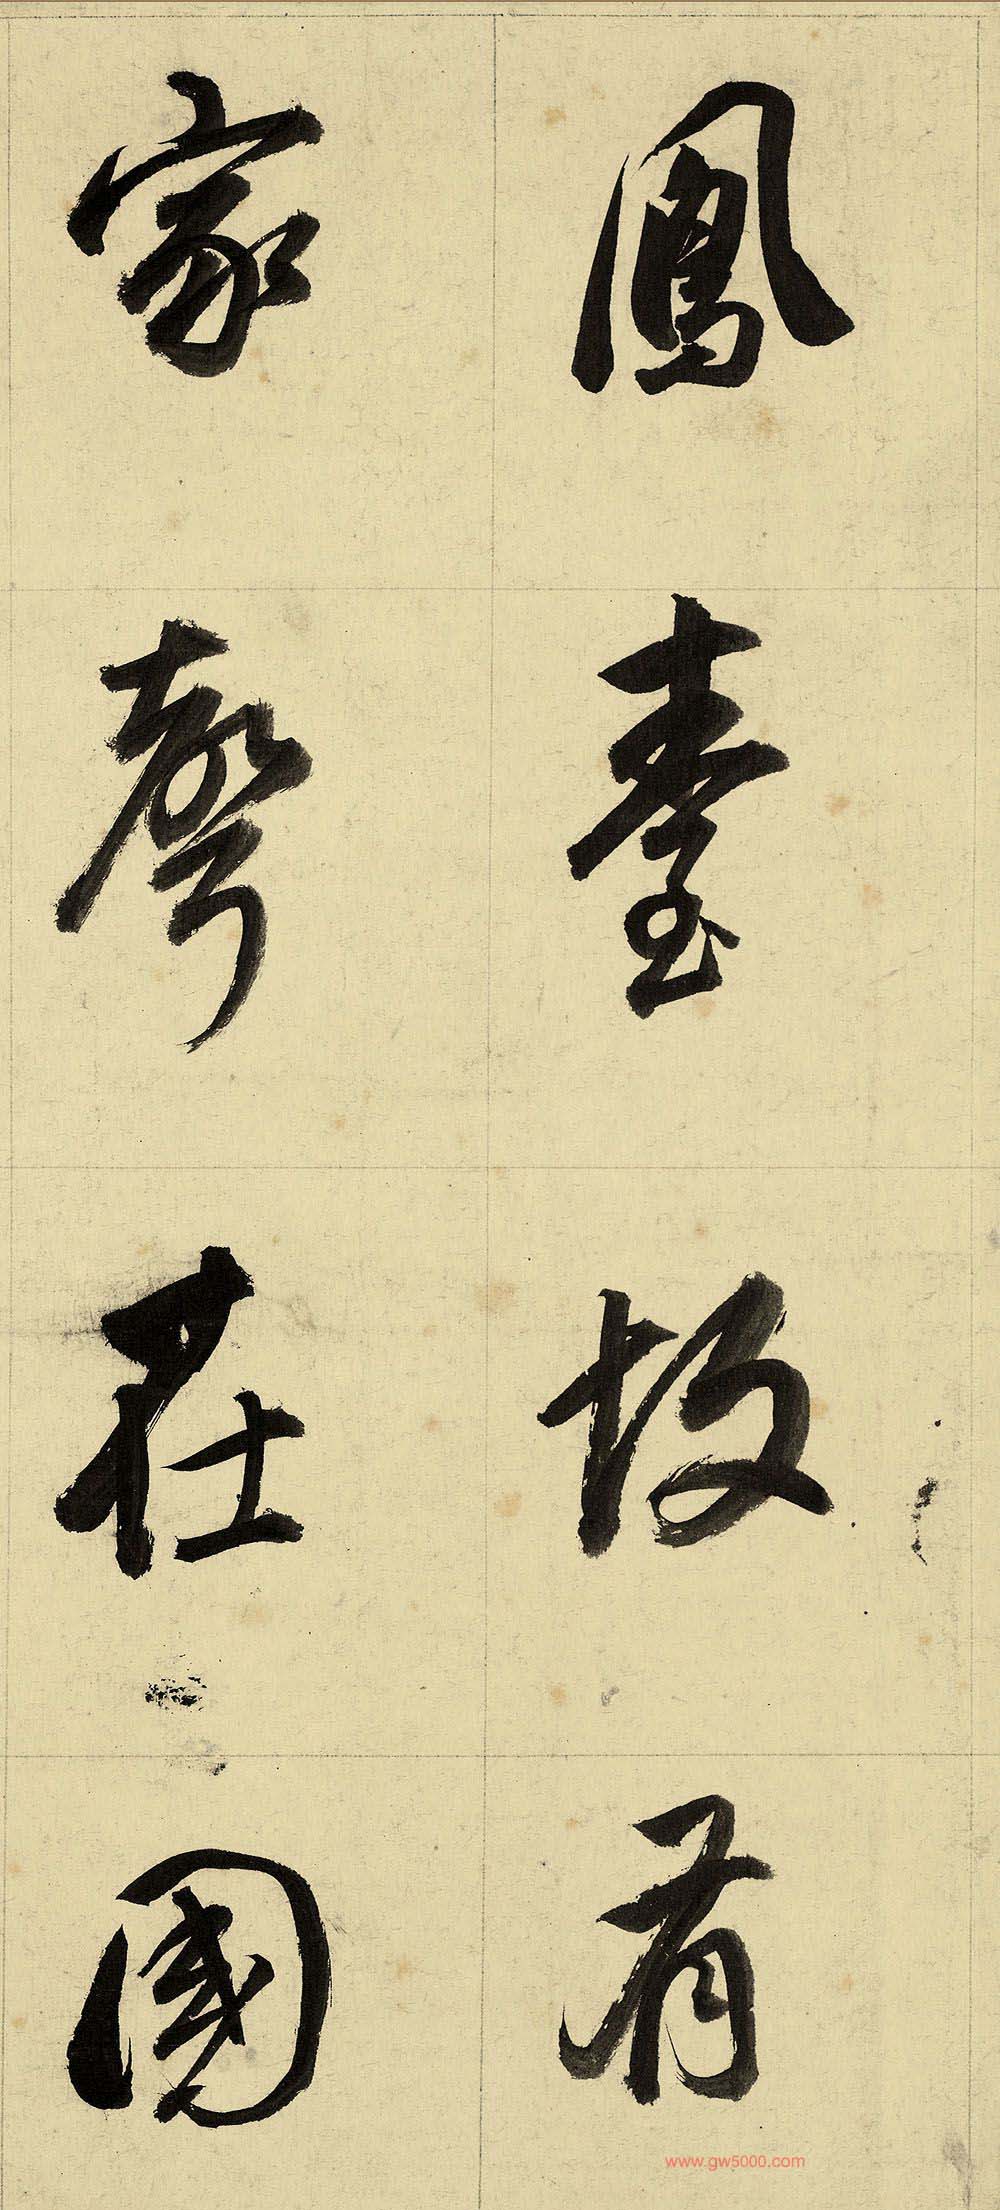 鳳臺故有
家聲在國
www.gw5000.com